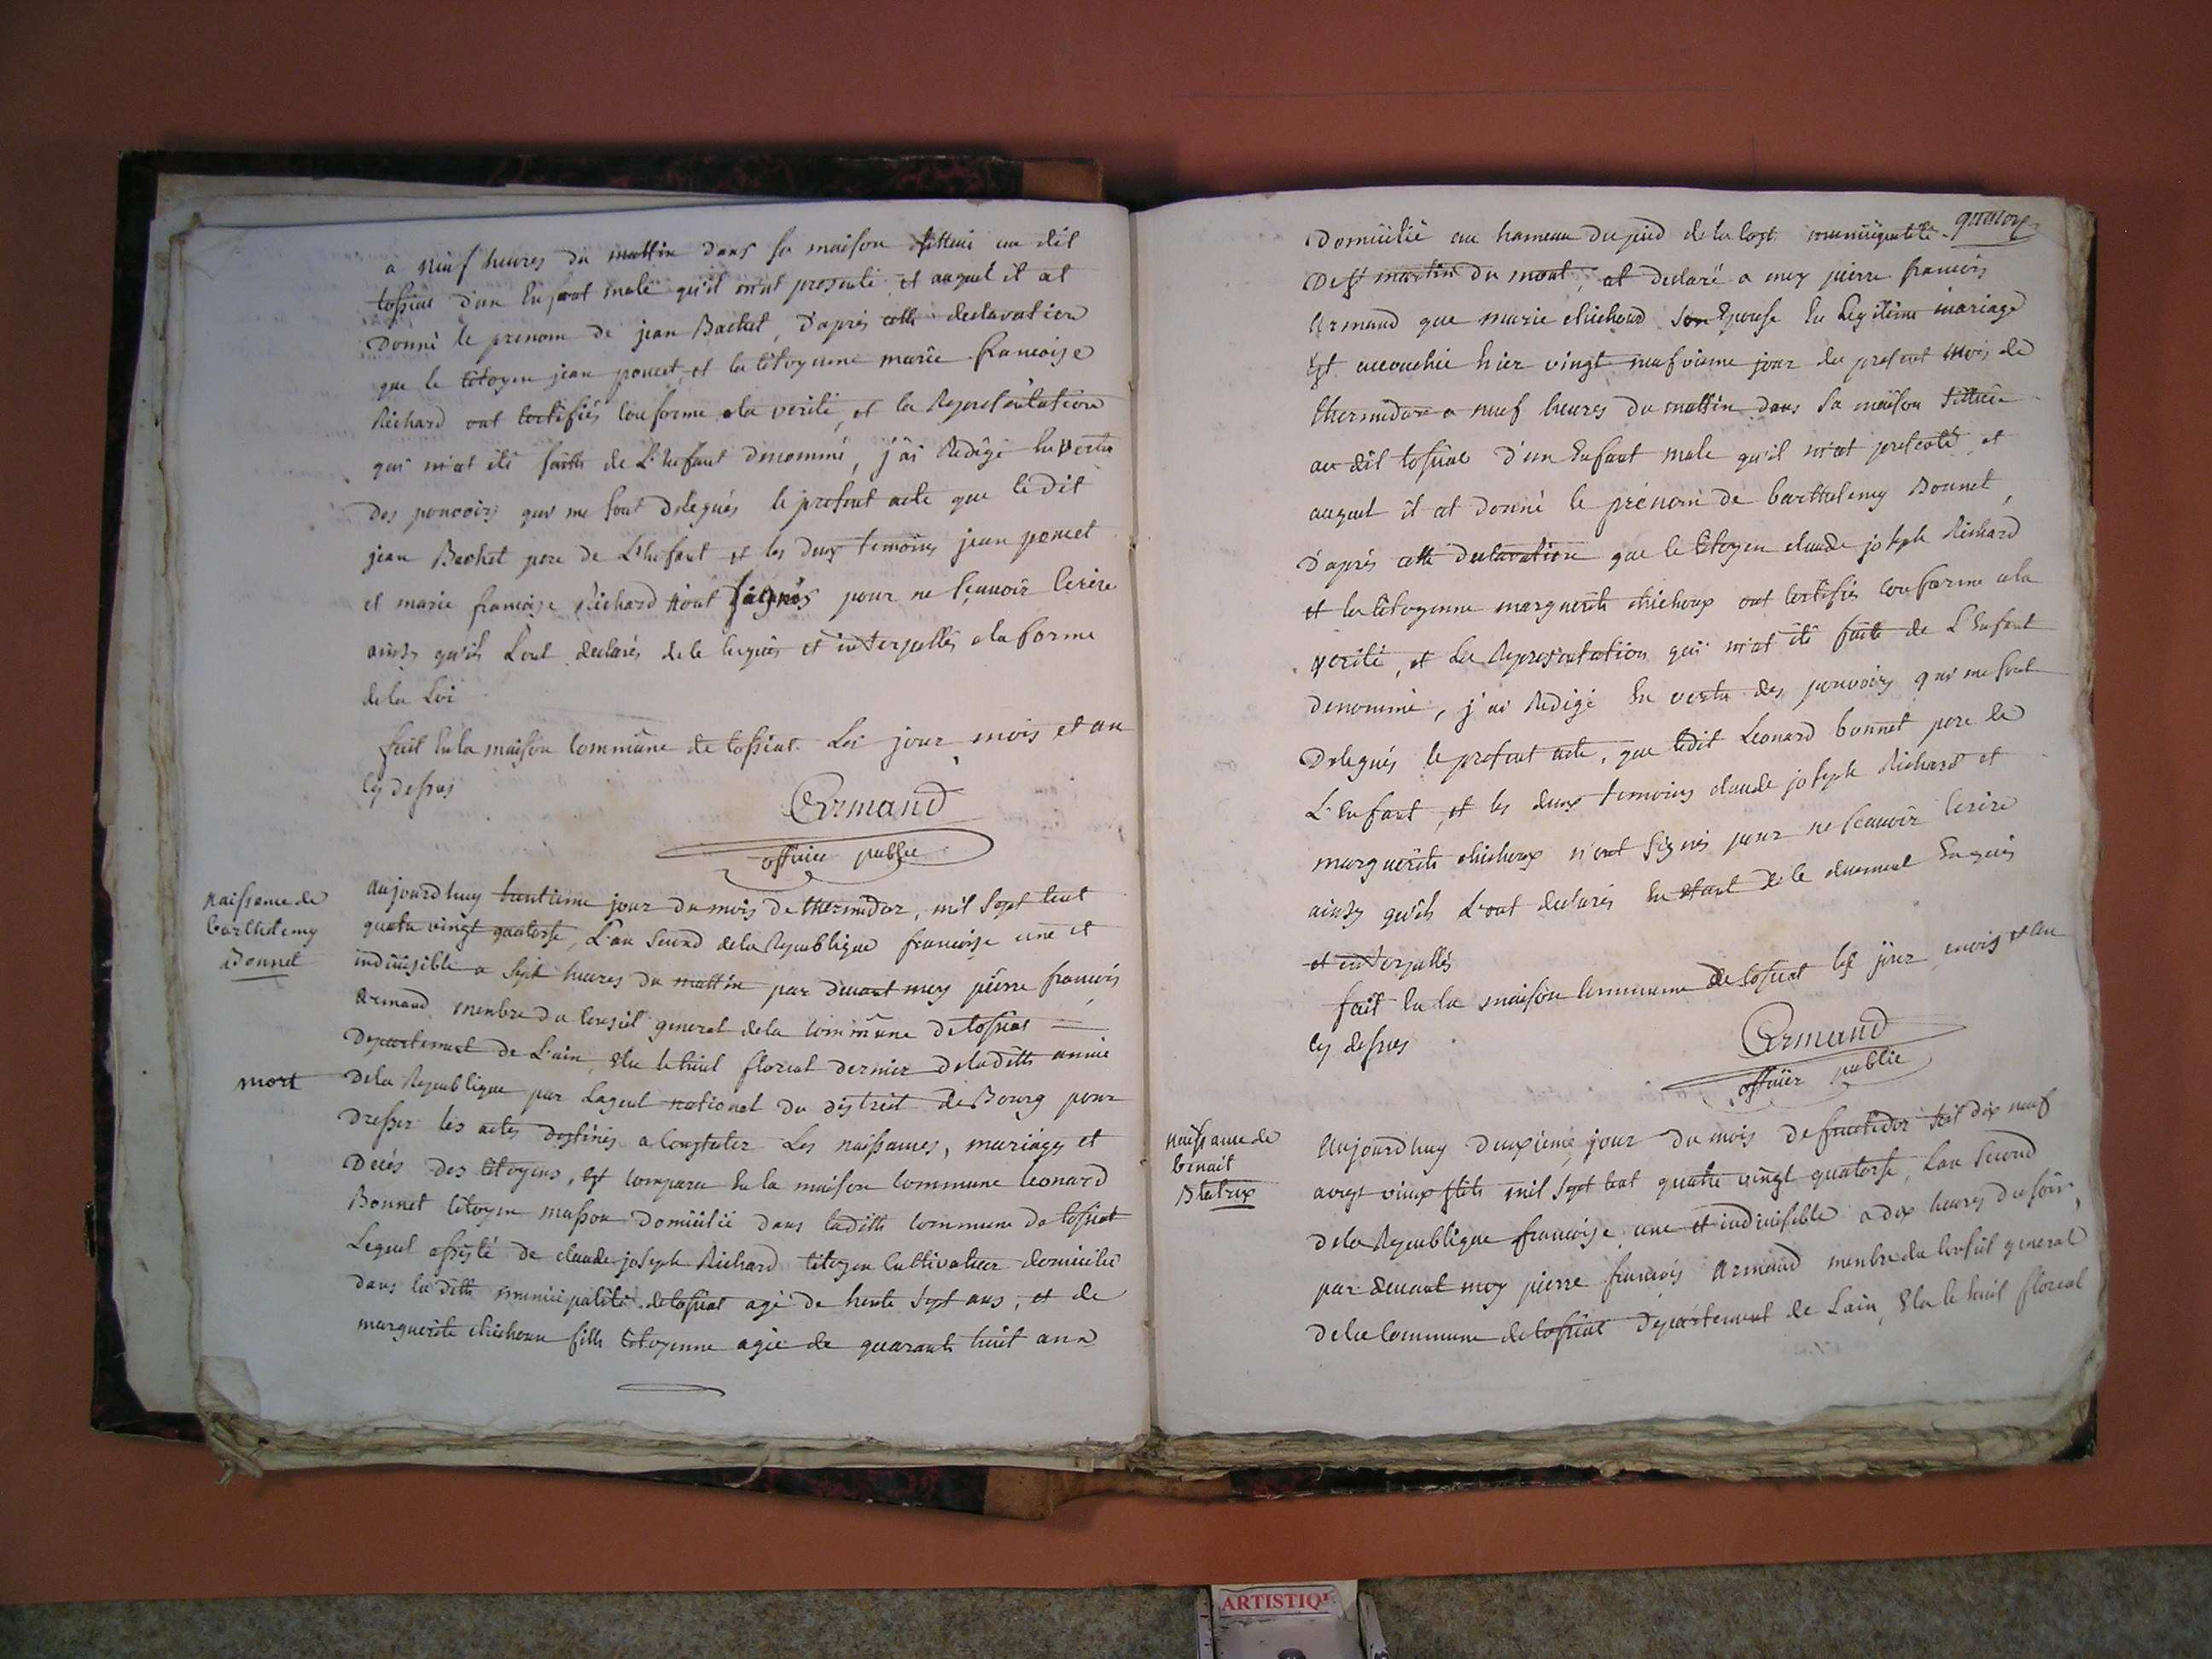 a neuf heures du mattin dans sa maison sittuée au dit
tossiat d'un Enfant male qu'il m'at presenté et auquel il at
Donné le prenom de jean Bachet, d'après cette declaration
que le Citoyen jean poncet, et la Citoyenne marie francoise
Richard ont Certifiés Conforme a la verité, et la Representation
qui m'at été faitte de L'Enfant denommé, j'ai Redigé En vertu
Des pouvoirs qui me sont Delegués le present acte que ledit
jean Bachet pere de L'Enfant et les deux temoins jean poncet
et marie francoise Richard n'ont signés pour ne sçauvoir Ecrire
ainsy qu'ils L'ont declarés de le Enquis et interpellés a la forme
de la Loi
fait En la maison Commune de tossiat Les jour mois et an
Cy dessus
Armand
officier public
Naissance de
barthelemy
Bonnet
mort
Aujourdhuy trentieme jour du mois de thermidor, mil Sept Cent
quatre vingt quatorse, L'an Second de la Republique francoise une et
indivisible a Sept heures du mattin par devant moy pierre francois
Armand menbre du Conseil general de la Commune de tossiat =
Departement de L'ain, Elu le huit floreal dernier de la ditte année
de la Republique par Lagent national du district de Bourg pour
Dresser les actes destinés a Constater Les naissances, mariages et
Decés des Citoyens, est Comparu En la maison Commune Leonard
Bonnet Citoyen masson Domicilié dans laditte Commune de tossiat
Lequel assisté de claude joseph Richard Citoyen Cultivateur domicilié
dans la ditte municipalité de tossiat agé de trente Sept ans, et de
marguerite chichoux fille Citoyenne agée de quarante huit ans
quatorze
Domicilié au hameau du pied de la Cost municipalité
De St martin du mont, at declaré a moy pierre francois
Armand que marie chichoud Son Epouse En Legitime mariage
Est accouchée hier vingt neufvieme jour du present mois de
thermidore a neuf heures du mattin dans Sa maison Sittuée
au dit tossiat d'un Enfant male qu'il m'at presenté et
auquel il at donné le prenom de barthelemy Bonnet,
d'après cette declaration que le Citoyen claude joseph Richard
et la Citoyenne marguerite chichoux ont Certifiés Conforme a la
verité, et La Representation qui m'at été faite de L'Enfant
denommé, j'ai Redigé En vertu des pouvoirs qui me sont
Delegués le present acte, que ledit Leonard bonnet pere de
L'Enfant, et les deux temoins claude joseph Richard et
marguerite chichoux n'ont Signés pour ne Sçauvoir Ecrire
ainsy qu'ils L'ont declarés En etant de le duement Enquis
et interpellés
fait En la maison Commune de tossiat les jour mois et an
Cy dessus
Armand
officier public
Naissance de
benoit
Aujourdhuy deuxieme jour du mois de fructidor soit dix neuf
aoust vieux stile mil Sept Cent quatre vingt quatorse, Lan Second
de la Republique francoise une et indivisible a dix heures du soir,
par devant moy pierre francois Armand menbre du Conseil general
de la Commune de tossiat Departement de Lain, Elu le huit floreal
ARTISTIQ